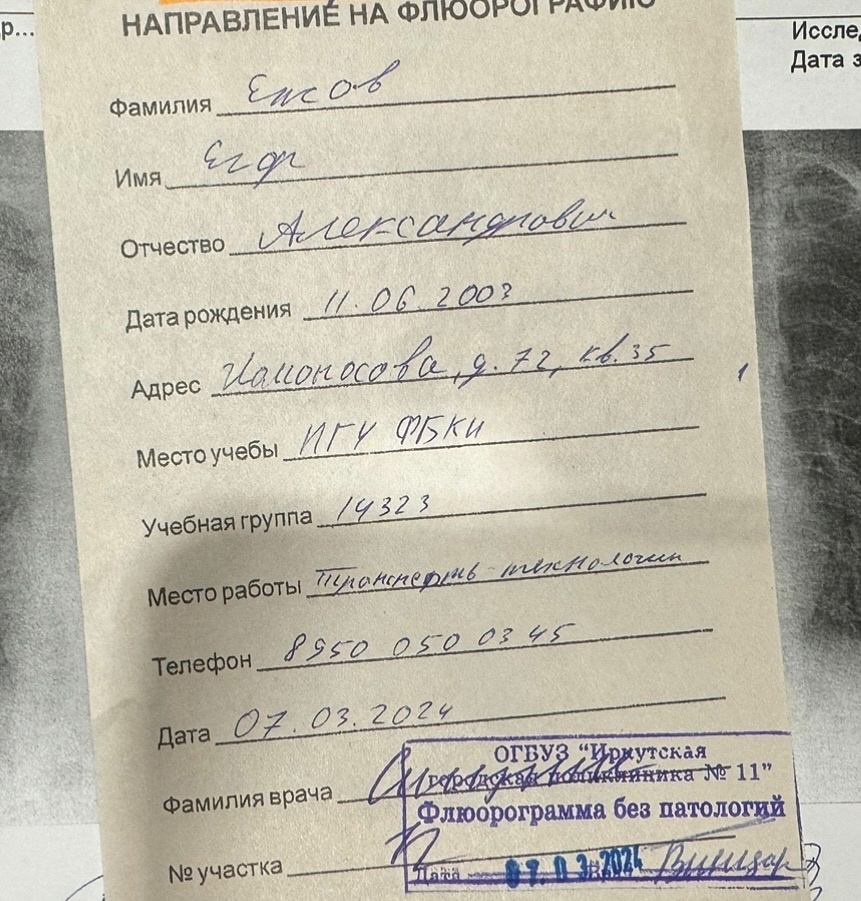 р...
Иссле
Дата з
НАПРАВЛЕНИЕ НА ФЛЮОРОГРАФИЮ
Фамилия Ежов
Имя Егор
Отчество Александрович
Дата рождения 11.06.2003
Адрес Ломоносова, д. 72, кв. 35
Место учебы ИГУ ФБКИ
Учебная группа 14323
Место работы Транснефть-технологии
Телефон 8950 050 03 45
Дата 07.03.2024
Фамилия врача
№ участка
ОГБУЗ "Иркутская
городская поликлиника № 11"
Флюорограмма без патологий
Дата 07.03.2024